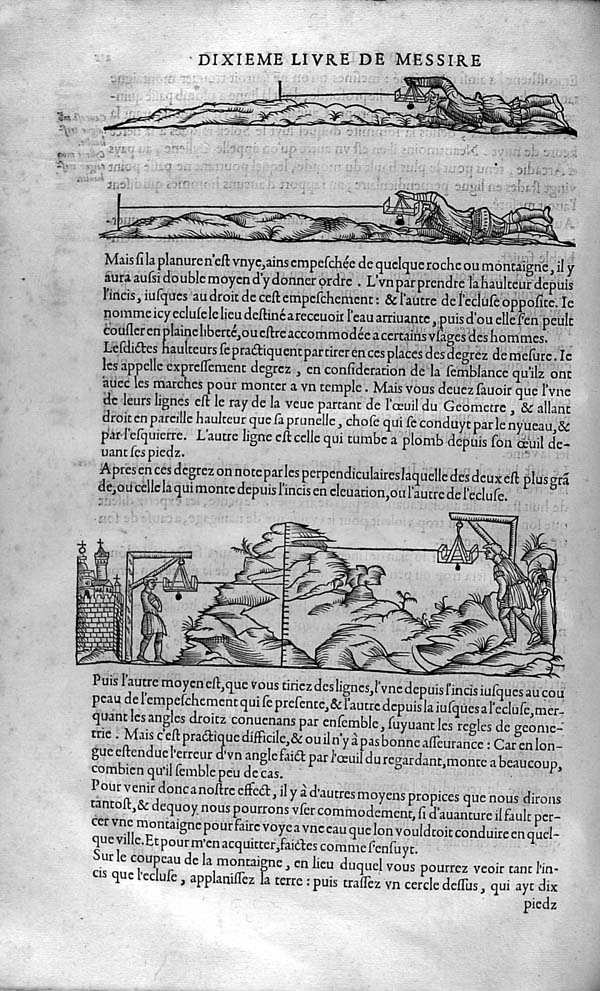 DIXIEME LIVRE DE MESSIRE
Mais si la planure n'est vnye, ains empeschée de quelque roche ou montaigne, il y
aura aussi double moyen d'y donner ordre. L'vn par prendre la haulteur depuis
l'incis, iusques au droit de cest empeschement: & l'autre de l'ecluse opposite. Ie
nomme icy ecluse le lieu destiné a receuoir l'eau arriuante, puis d'ou elle s'en peult
couster en plaine liberté, ou estre accommodée a certains vsages des hommes.
Lesdictes haulteurs se practiquent par tirer en ces places des degrez de mesure. Ie
les appelle expressement degrez, en consideration de la semblance qu'ilz ont
auec les marches pour monter a vn temple. Mais vous deuez sauoir que l'vne
de leurs lignes est le ray de la veue partant de l'œuil du Geometre, & allant
droit en pareille haulteur que sa prunelle, chose qui se conduyt par le nyueau, &
par l'esquierre. L'autre ligne est celle qui tumbe a plomb depuis son œuil de-
uant ses piedz.
Apres en ces degrez on note par les perpendiculaires laquelle des deux est plus grã
de, ou celle la qui monte depuis l'incis en eleuation, ou l'autre de l'ecluse.
Puis l'autre moyen est, que vous tiriez des lignes, l'vne depuis l'incis iusques au cou
peau de l'empeschement qui se presente, & l'autre depuis la iusques a l'ecluse, mer-
quant les angles droitz conuenans par ensemble, suyuant les regles de geome-
trie. Mais c'est practique difficile, & ou il n'y à pas bonne asseurance: Car en lon-
gue estendue l'erreur d'vn angle faict par l'œuil du regardant, monte a beaucoup,
combien qu'il semble peu de cas.
Pour venir donc a nostre effect, il y à d'autres moyens propices que nous dirons
tantost, & dequoy nous pourrons vser commodement, si d'auanture il fault per-
cer vne montaigne pour faire voye a vne eau que lon vouldroit conduire en quel-
que ville. Et pour m'en acquitter, faictes comme s'ensuyt.
Sur le coupeau de la montaigne, en lieu duquel vous pourrez veoir tant l'in-
cis que l'ecluse, applanissez la terre: puis trassez vn cercle dessus, qui ayt dix
piedz